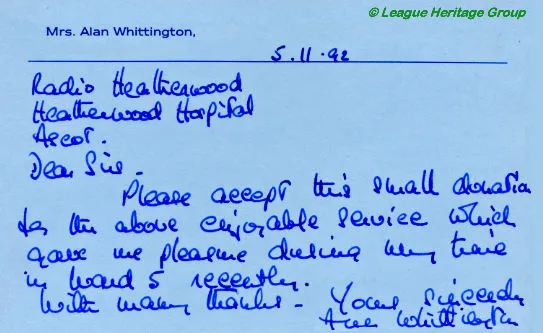 © League Heritage Group
Mrs. Alan Whittington,
5.11.92
Radio Heatherwood
Heatherwood Hospital
Ascot.
Dear Sirs.
Please accept this small donation
for the above enjoyable service which
gave me pleasure during my time
in Ward 5 recently.
With many thanks - Yours sincerely
Ann Whittington